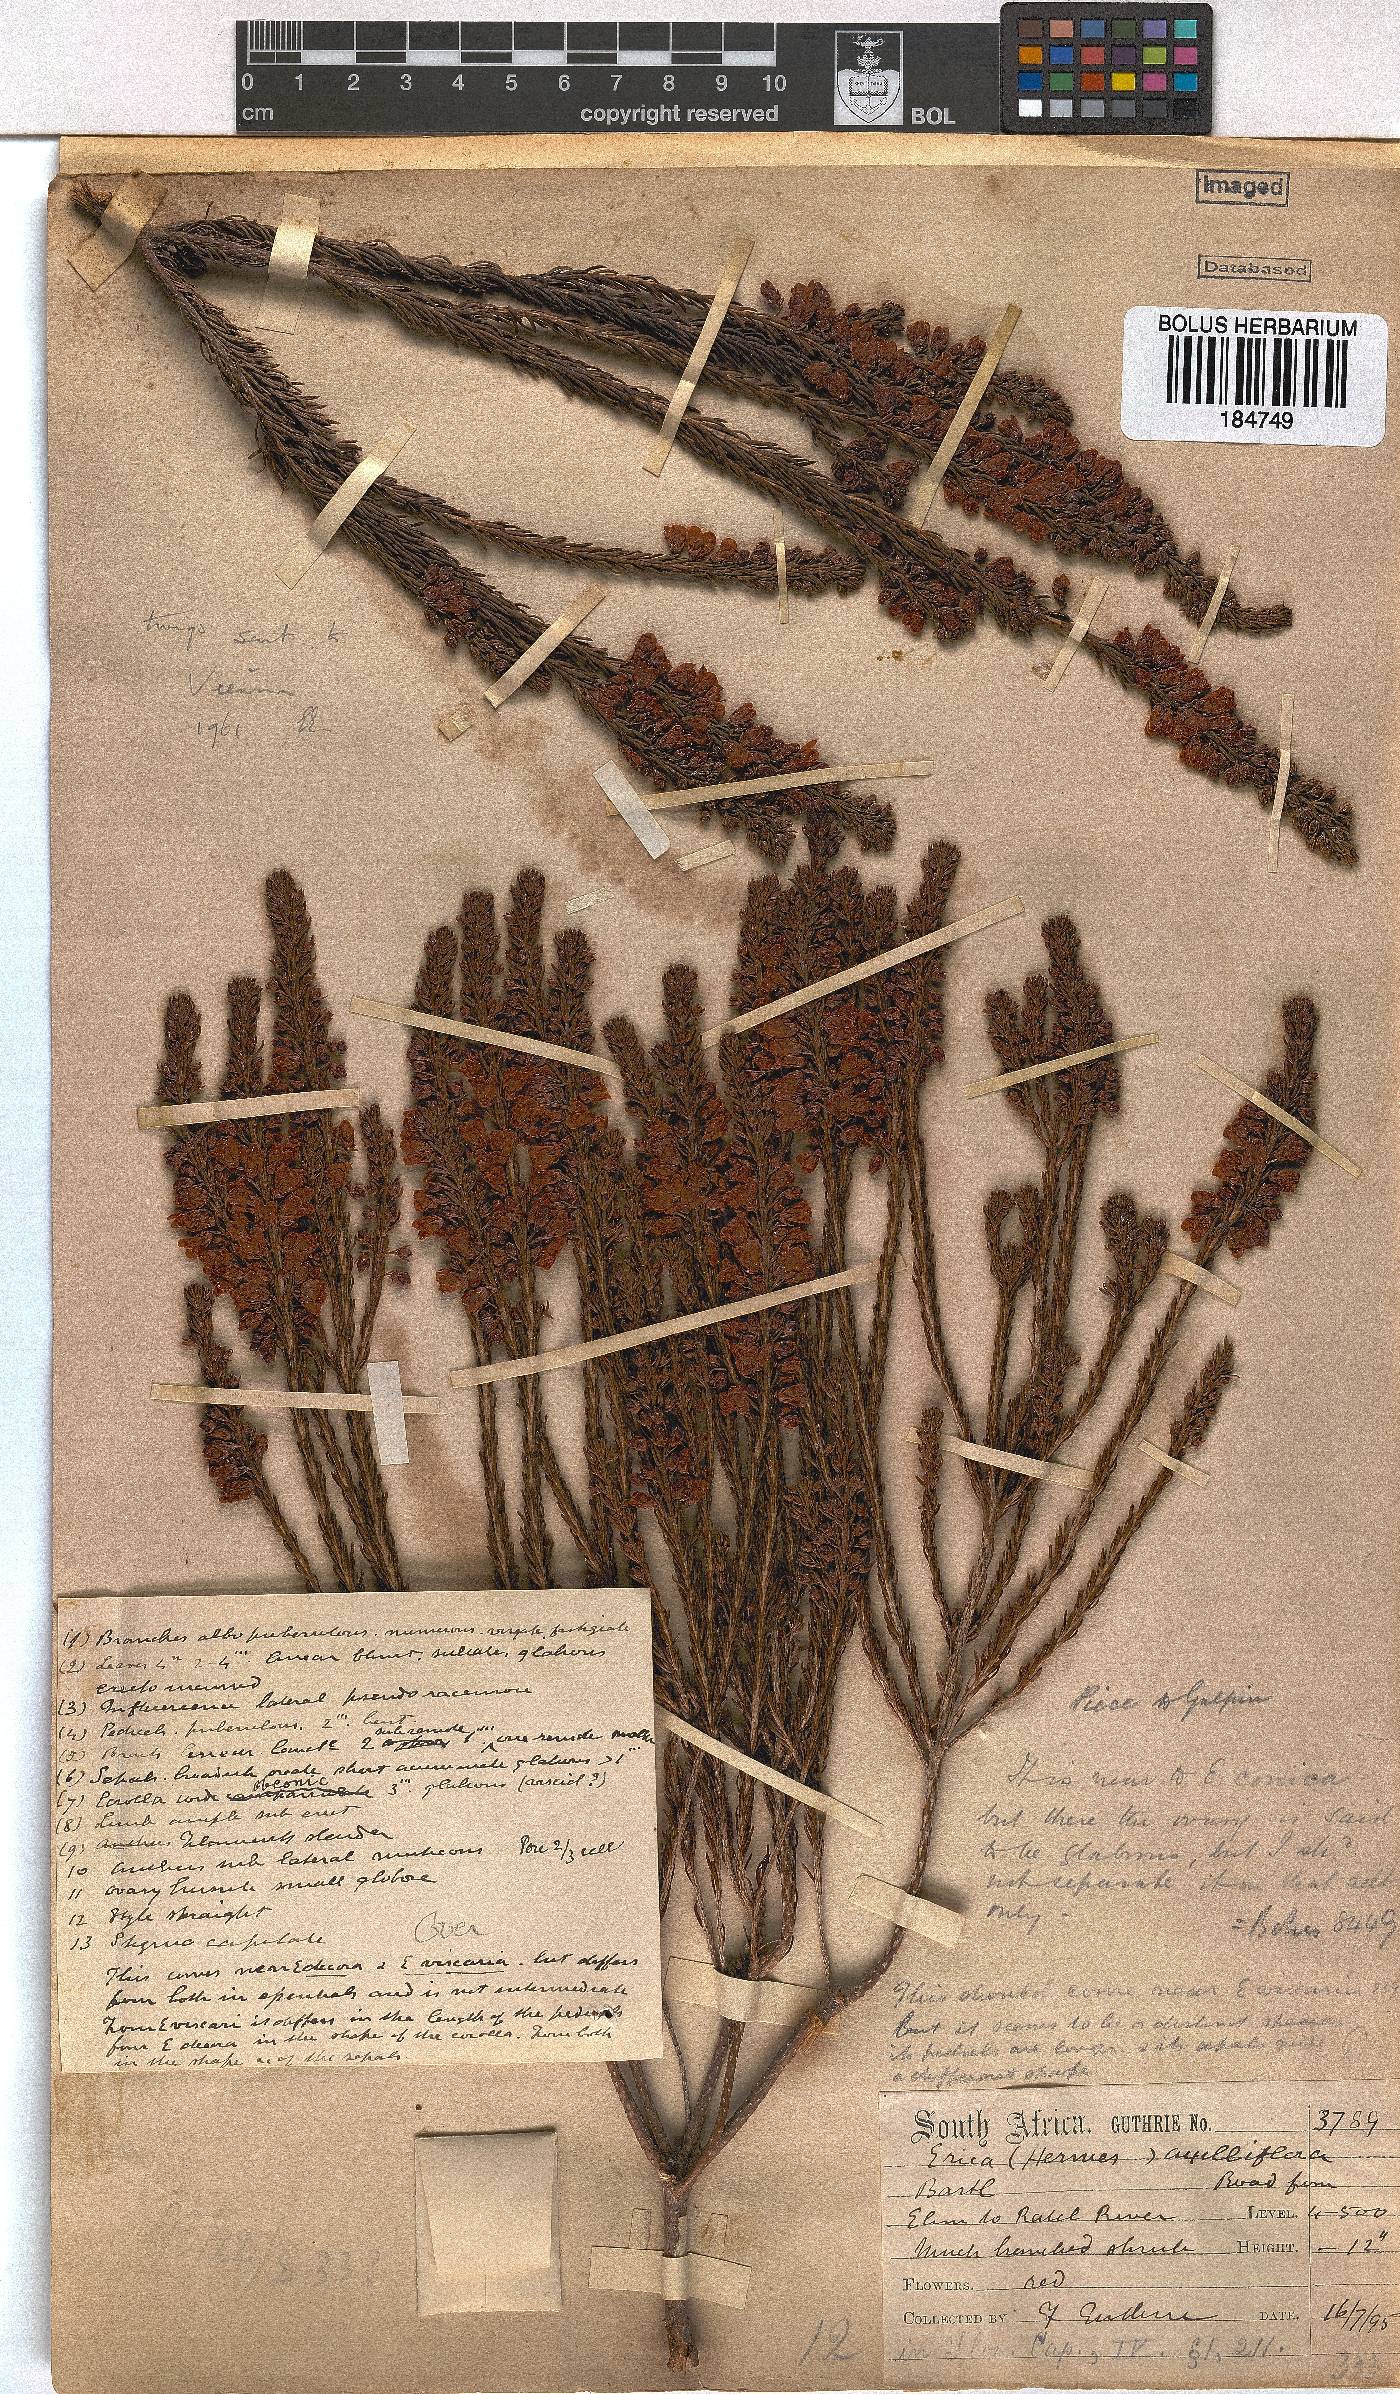 0 1 2 3 4 5 6 7 8 9 10
cm
copyright reserved
BOL
Imaged
Databased
BOLUS HERBARIUM
184749
twigs sent to
Vienna
1961
(1) Branches albo puberulous. numerous. virgate, fastigiate
(2) Leaves 4ⁿ 2-4''' linear blunt, sulcate, glabrous
erecto incurved
(3) Inflorescence lateral pseudo racemose
(4) Pedicels. puberulous. 2'''
(5) Bracts linear 2 subremote one remote
(6) Sepals. broadish ovate, short acuminate glabrous >1'''
(7) Corolla wide obconic 3''' glabrous (viscid?)
(8) Limb ample sub erect
(9) Filaments slender
10 Anthers sub lateral muticous Pore 2/3 cell
11 Ovary hirsute small globose
12 Style straight
13 Stigma capitate
Over
This comes near E decora & E viscaria. but differs
from both in essentials and is not intermediate
From E viscari it differs in the length of the pedicels
from E decora in the shape of the corolla. From both
in the shape of the sepals
Piece to Galpin
This is near to E conica
but there the ovary is said
to be glabrous, but I shd
not separate it on that acct
only -
= Bolus 8449
This should come near E viscaria
but it seems to be a distinct species
its pedicels are longer & its sepals
a different shape
South Africa. GUTHRIE No. 3789
Erica (Hermes) axilliflora
Bartl Road from
Elim to Ratel River LEVEL. 4-500
Much branched shrub HEIGHT. - 12"
FLOWERS. red
COLLECTED BY F Guthrie DATE. 16/7/95
in Flor. Cap., IV. §1, 211.
12